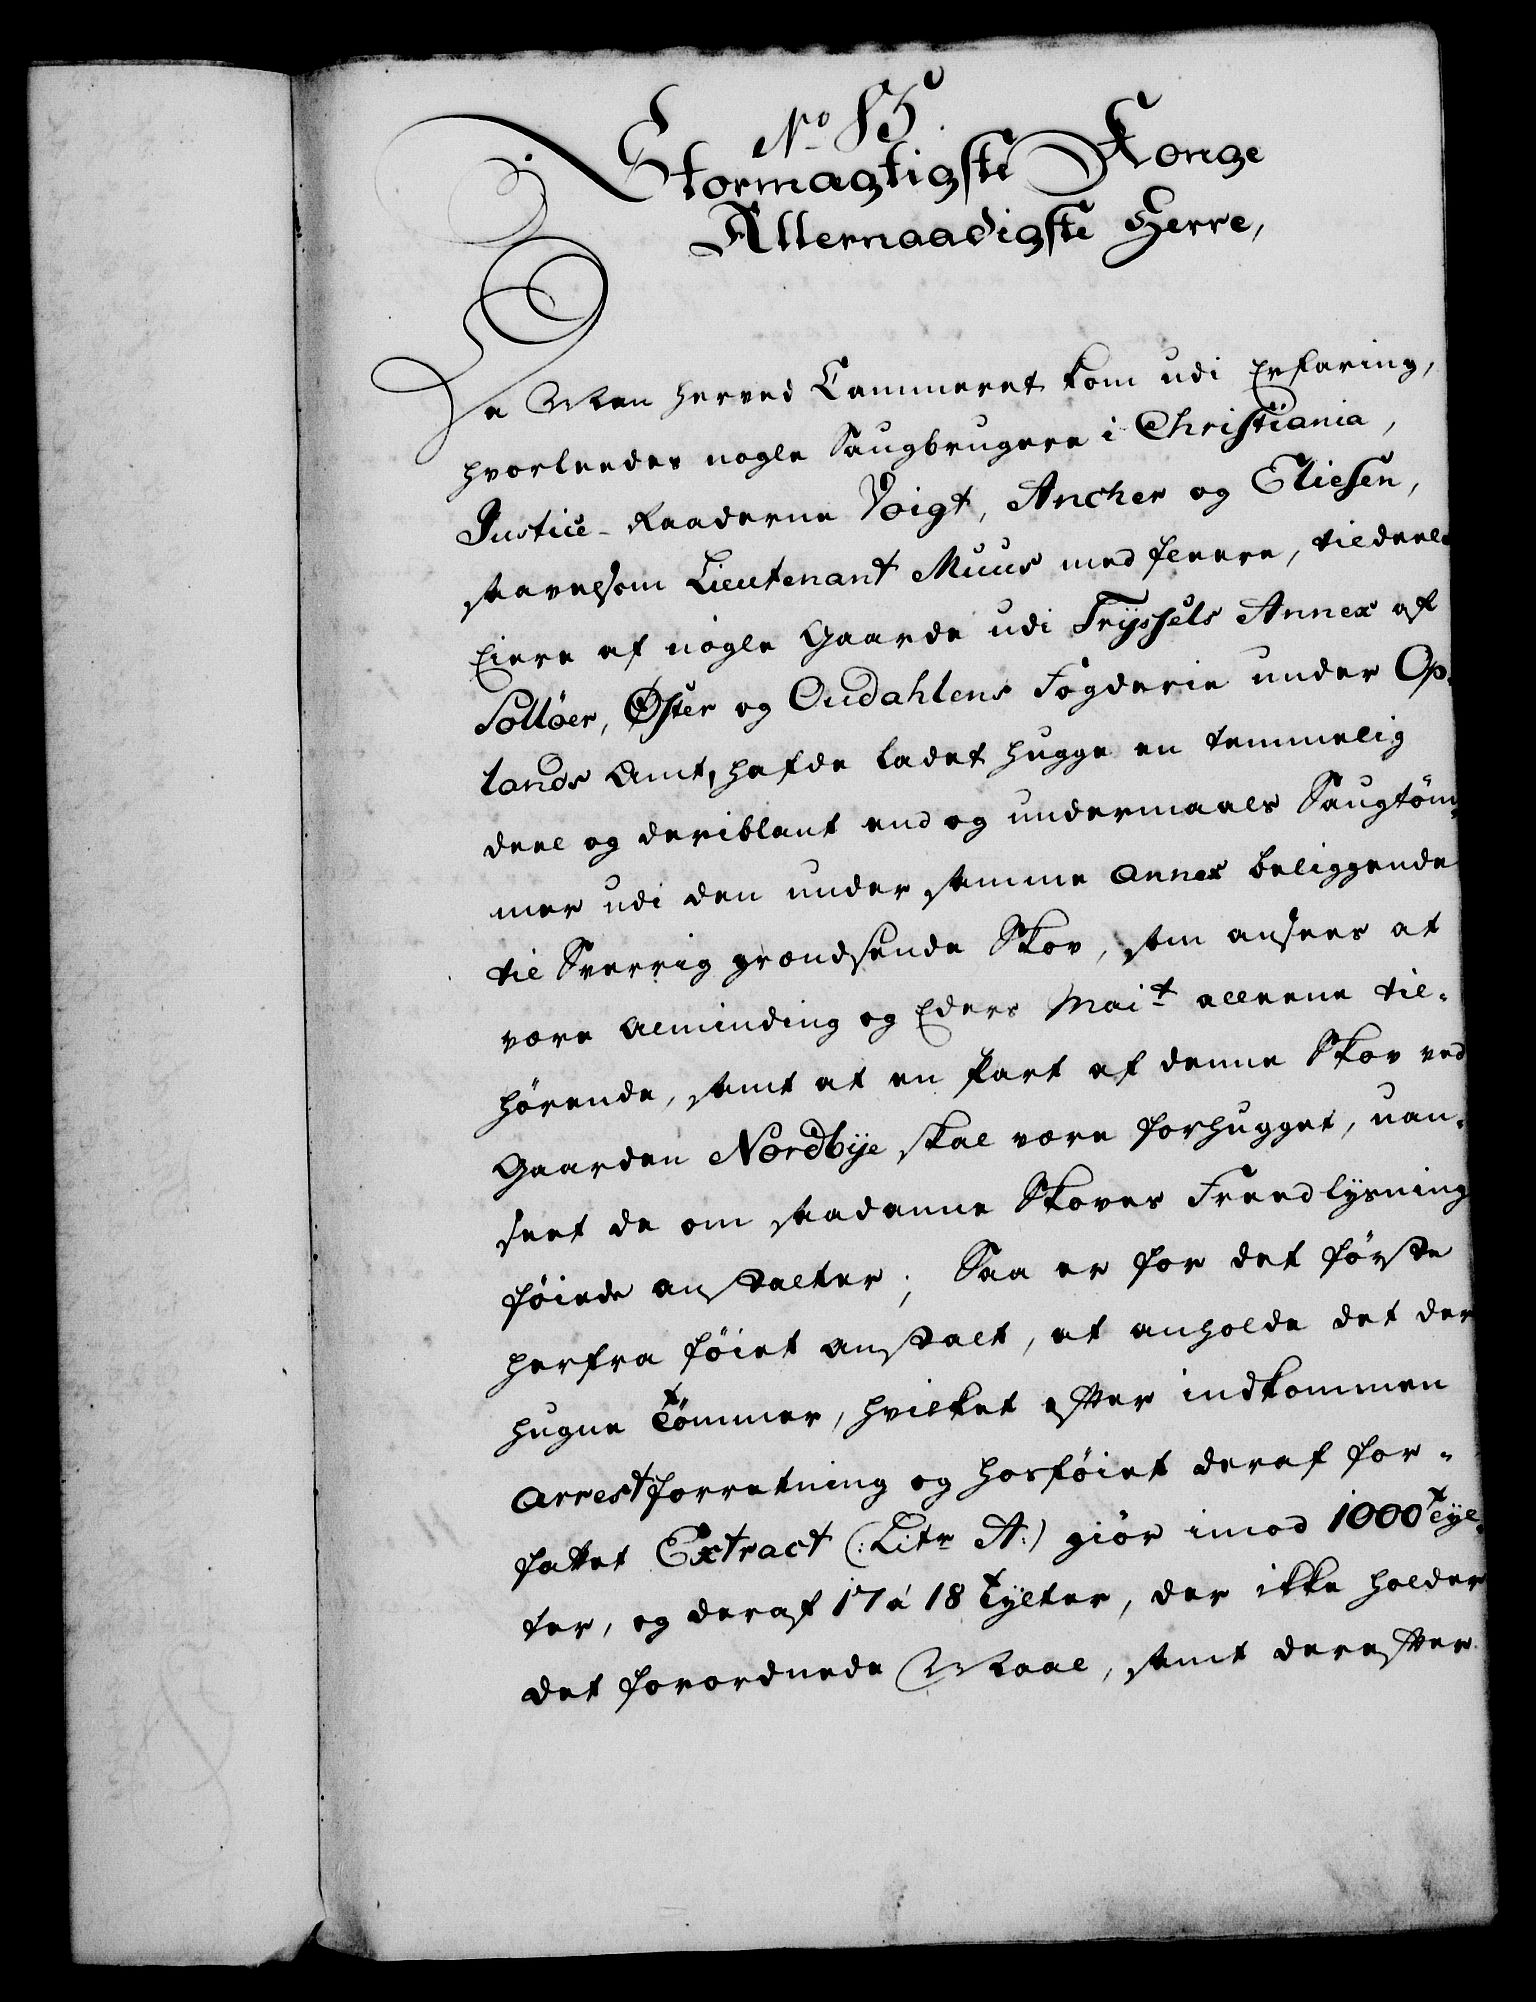 No 85.
Stormagtigste Konge
Allernaadigste Herre,
Da Man herved Cammeret kom udi Erfaring,
hvorleedes nogle Saugbrugere i Christiania,
Justice-Raaderne Voigt, Ancher og Eliesen,
saavelsom Lieutenant Muus med fleere, tildeels
Eiere af nogle Gaarde udi Tryssels Annex af
Solløer, Øster og Oudahlens Fogderie under Op-
lands Amt, hafde ladet hugge en temmelig
deel og deriblant end og undermaals Saugtöm-
mer udi den under samme Annex beliggende
til Sverrig grændsende Skov, som ansees at
være Alminding og Eders Mait alleene til-
hørende, samt at en Part af denne Skov ved
Gaarden Nordbÿe skal være forhugget, uan-
seet de om saadanne Skoves Freedlysning
föiede Anstalter; Saa er for det förste
herfra föiet Anstalt, at anholde det der
hugne Tömmer, hvilket efter indkommen
Arrestforretning og hosföiet deraf for-
fattet Extract (: Litr A:) giör imod 1000 Tyl-
ter, og deraf 17 à 18 Tylter, der ikke holder
det forordnede Maal, samt derefter